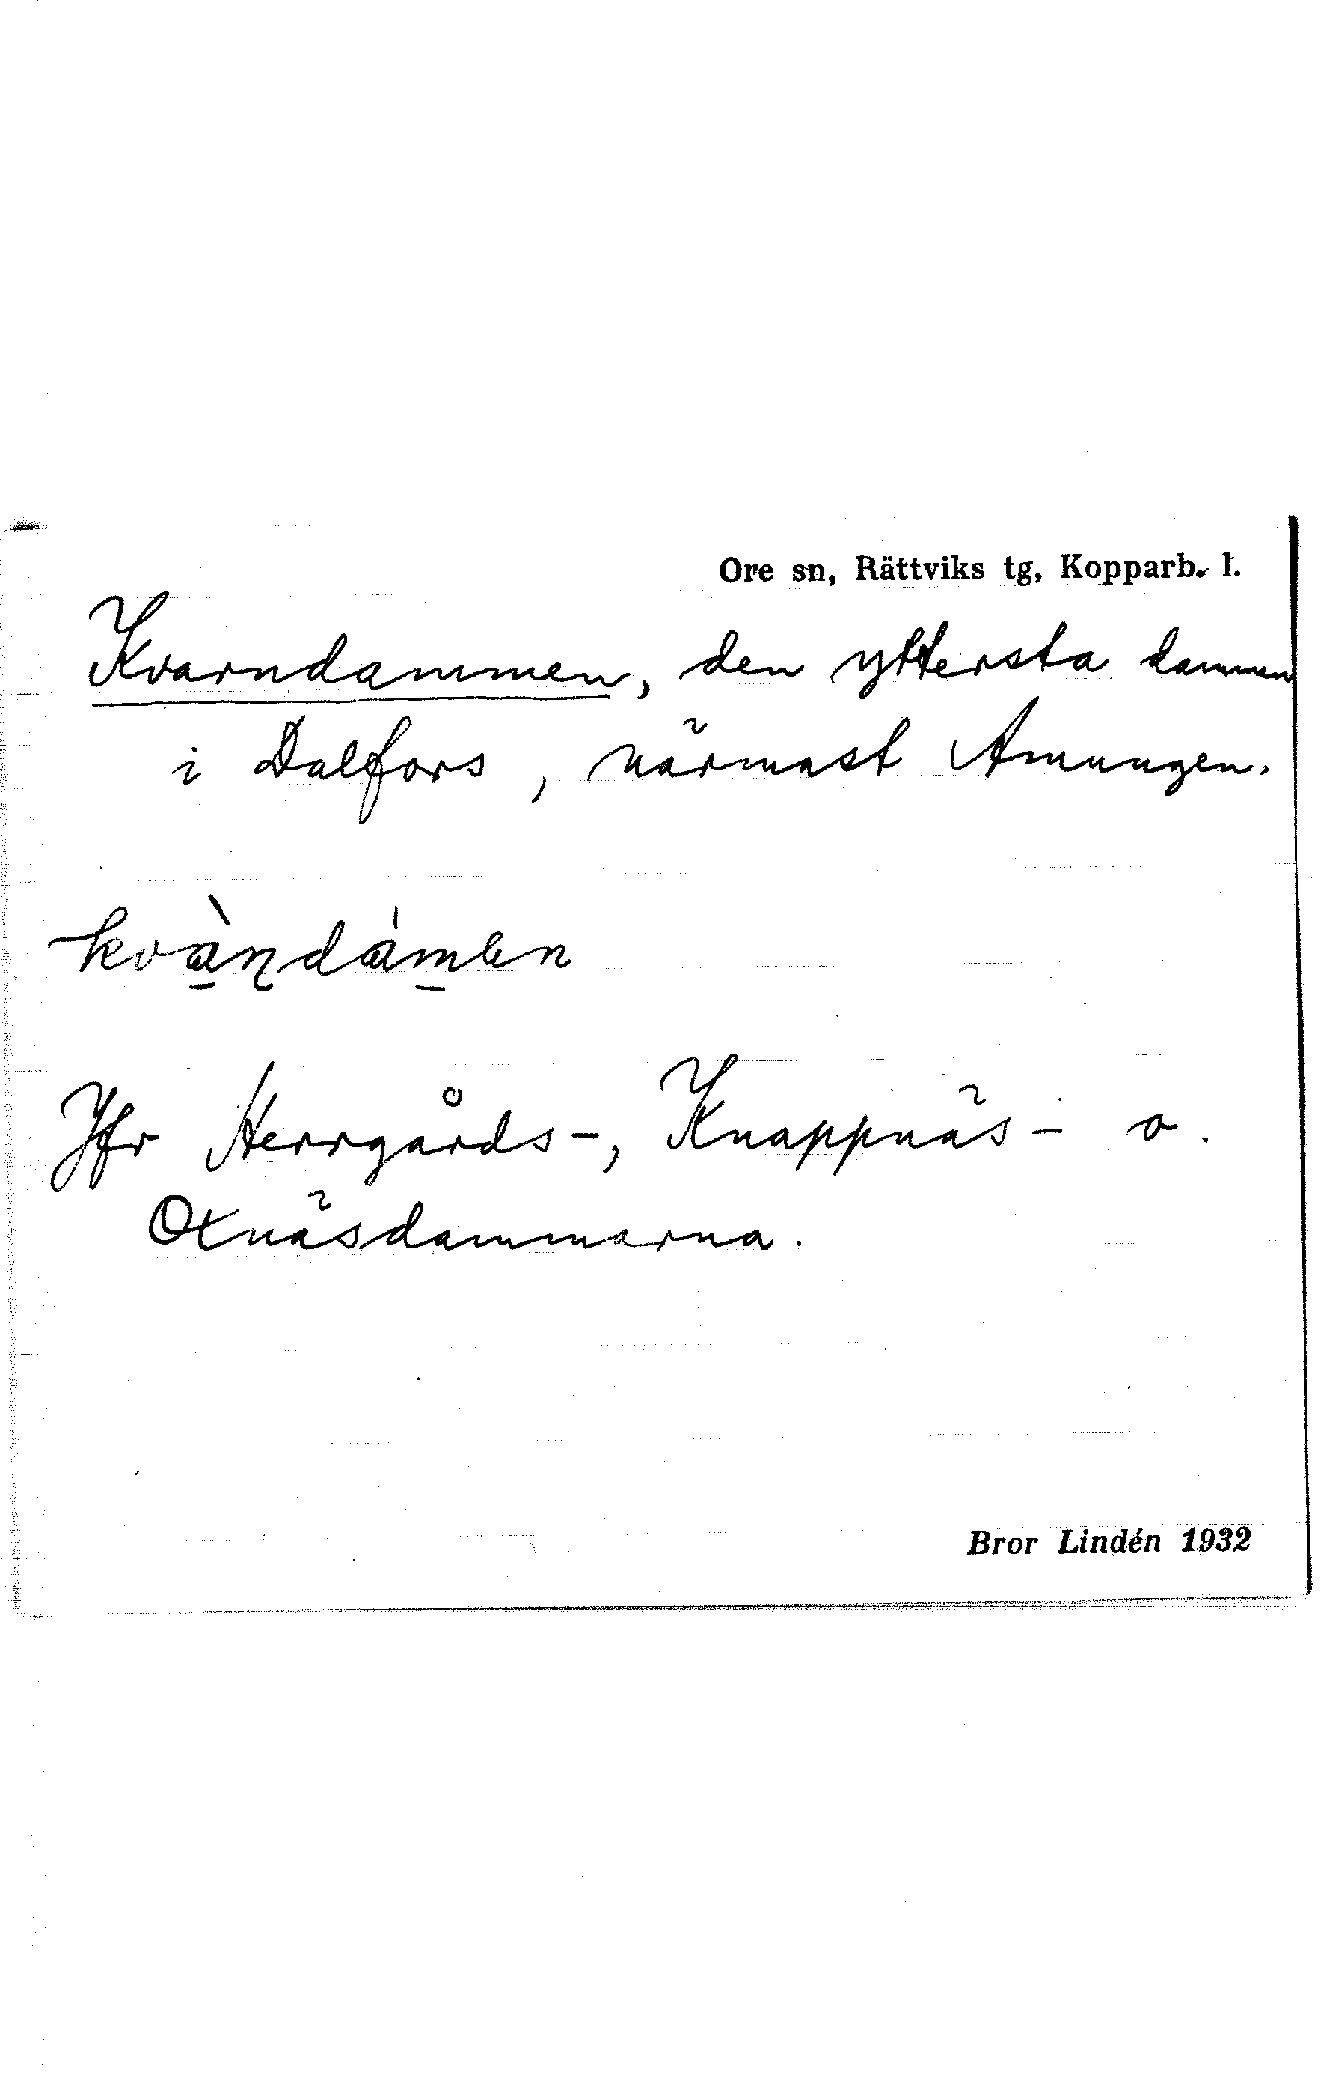 Ore sn, Rättviks tg, Kopparb. l.
Kvarndammen, den yttersta dammen
i Dalfors, närmast Amungen.
kvàṇdámən
Jfr Herrgårds-, Knappnäs- o.
Oxnäsdammarna.
Bror Lindén 1932